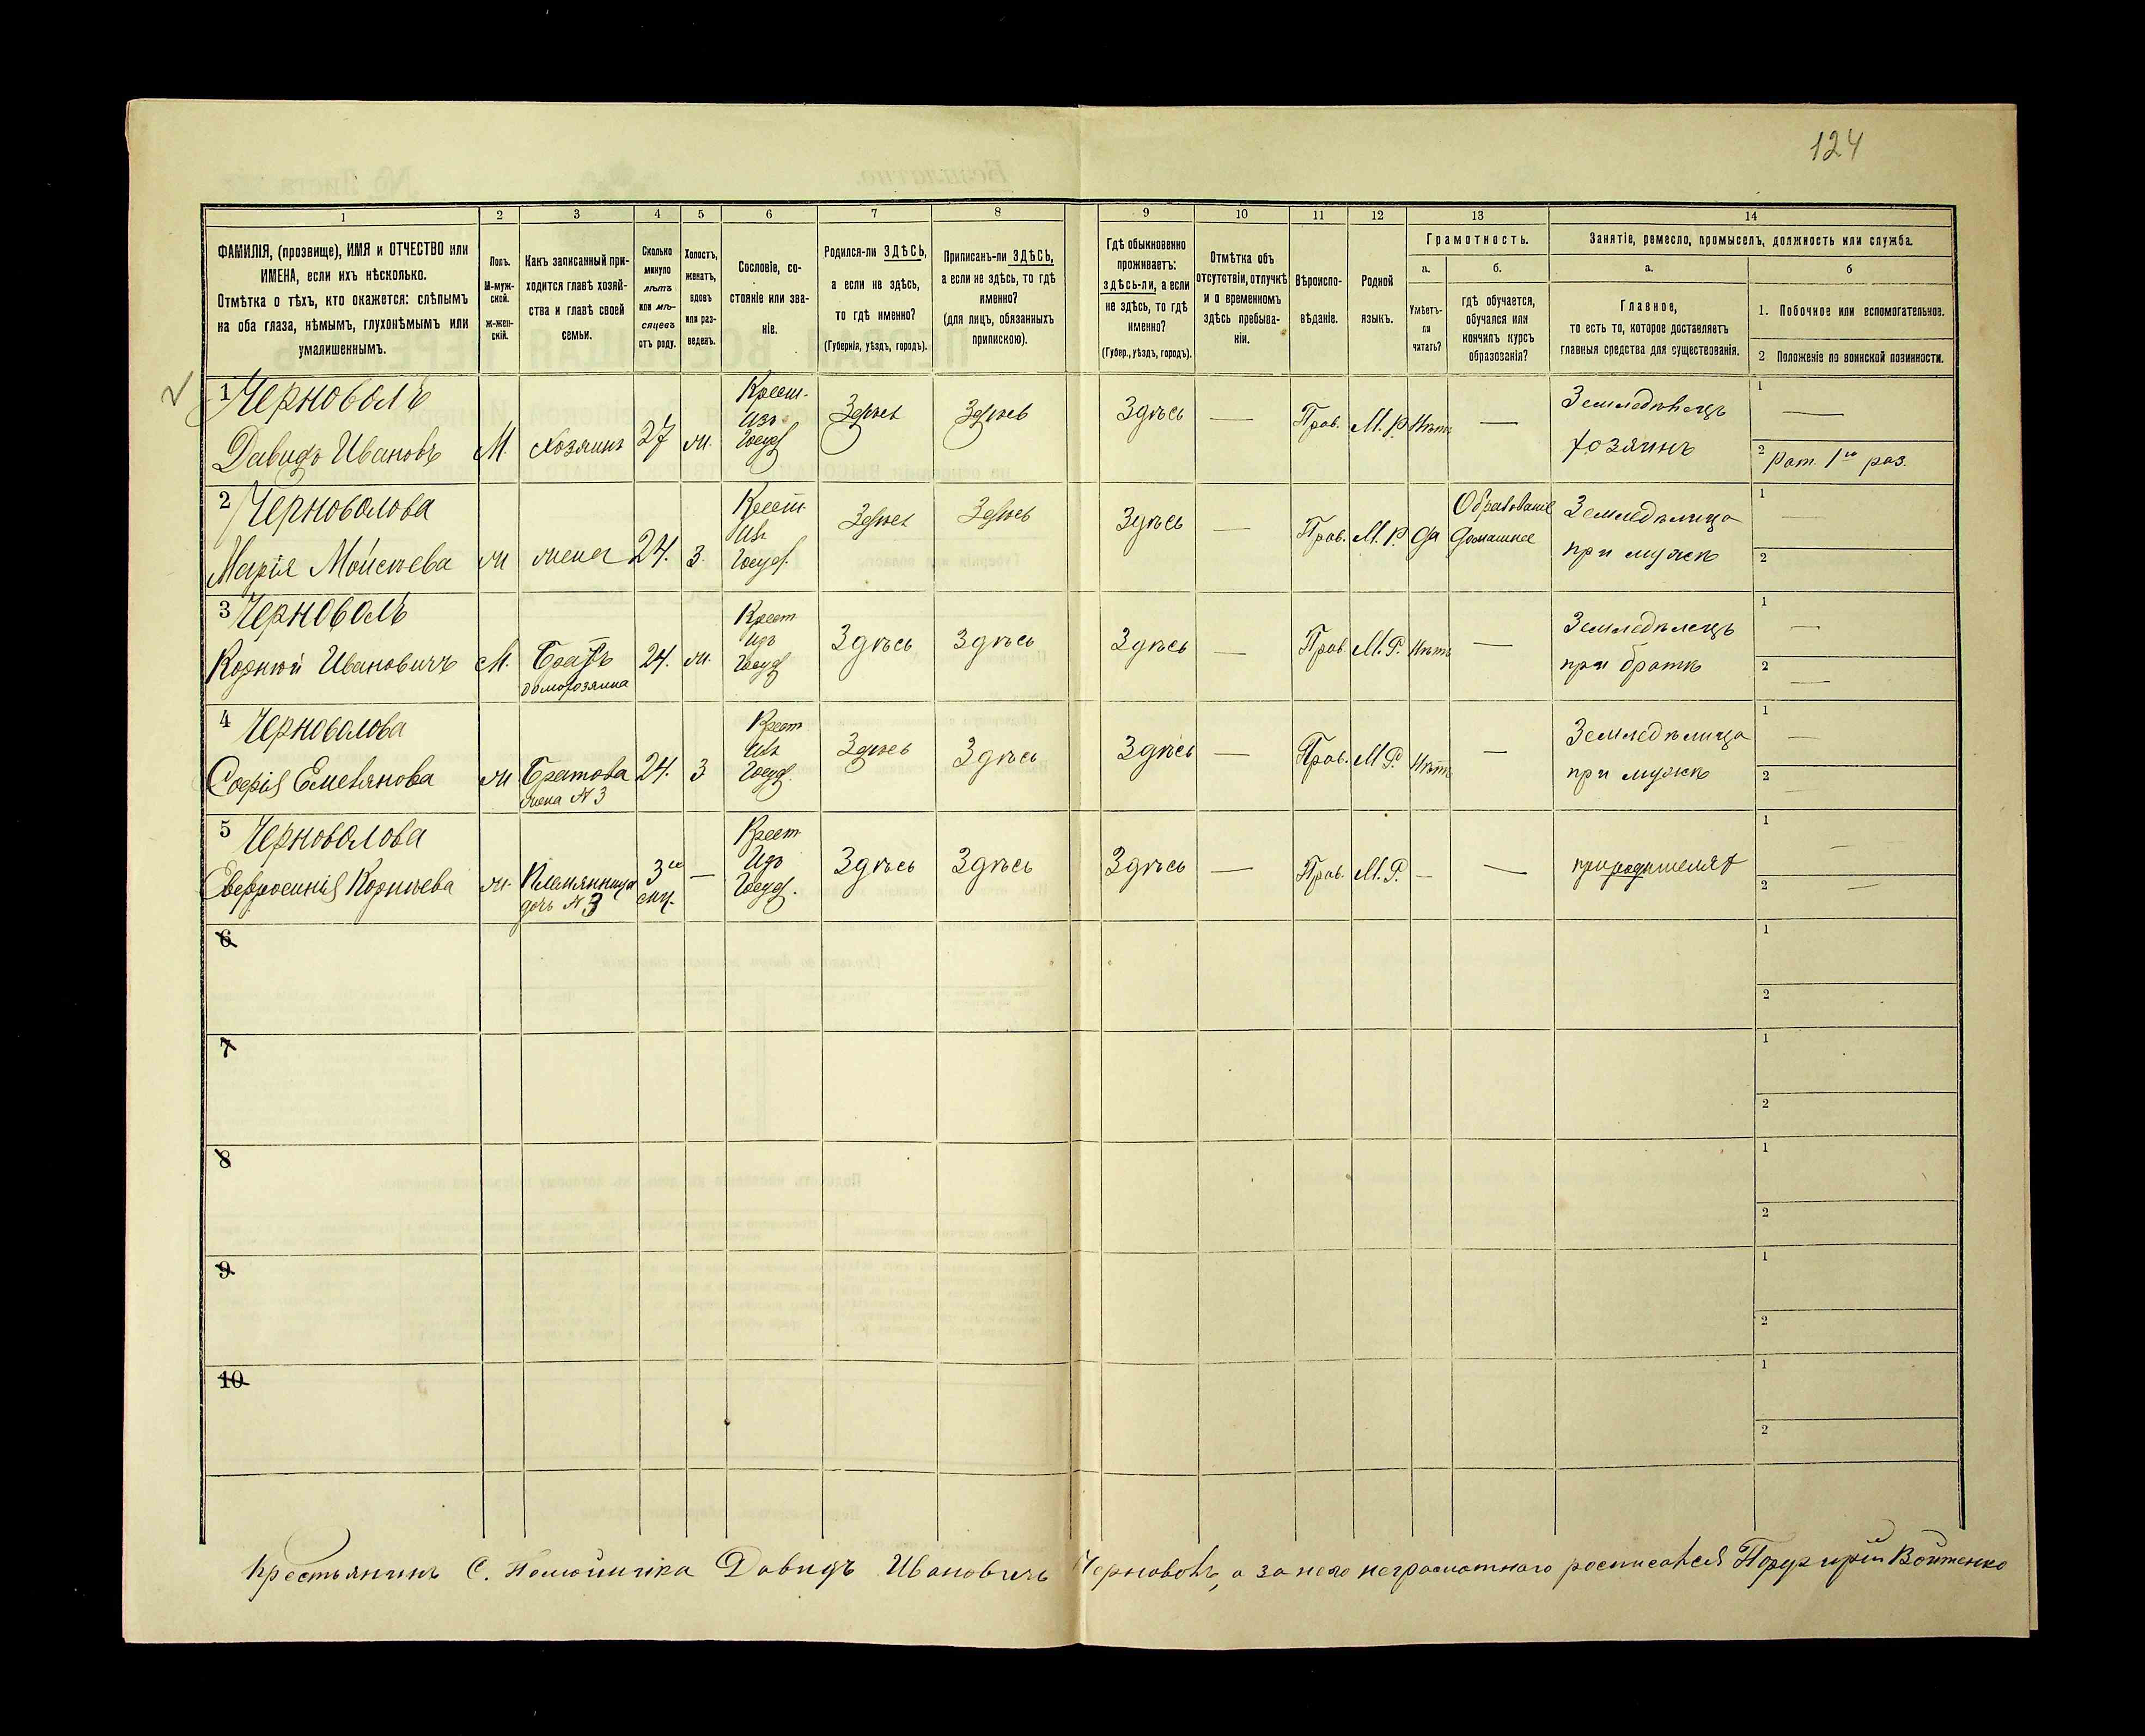 124
1 2 3 4 5 6 7 8 9 10 11 12 13 14
ФАМИЛІЯ, (прозвище), ИМЯ и ОТЧЕСТВО или
ИМЕНА, если ихъ нѣсколько.
Отмѣтка о тѣхъ, кто окажется: слѣпымъ
на оба глаза, нѣмымъ, глухонѣмымъ или
умалишеннымъ.
Полъ.
М-муж-
ской.
ж-жен-
скій.
Какъ записанный при-
ходится главѣ хозяй-
ства и главѣ своей
семьи.
Сколько
минуло
лѣтъ
или мѣ-
сяцевъ
отъ роду.
Холостъ,
женатъ,
вдовъ
или раз-
веденъ.
Сословіе, со-
стояніе или зва-
ніе.
Родился-ли ЗДѢСЬ,
а если не здѣсь,
то гдѣ именно?
(Губернія, уѣздъ, городъ).
Приписанъ-ли ЗДѢСЬ,
а если не здѣсь, то гдѣ
именно?
(для лицъ, обязанныхъ
припискою).
Гдѣ обыкновенно
проживаетъ:
здѣсь-ли, а если
не здѣсь, то гдѣ
именно?
(Губер., уѣздъ, городъ).
Отмѣтка объ
отсутствіи, отлучкѣ
и о временномъ
здѣсь пребыва-
ніи.
Вѣроиспо-
вѣданіе.
Родной
языкъ.
Грамотность.
а. б.
Умѣетъ-
ли
читать?
гдѣ обучается,
обучался или
кончилъ курсъ
образованія?
Занятіе, ремесло, промыселъ, должность или служба.
а. б
Главное,
то есть то, которое доставляетъ
главныя средства для существованія.
1. Побочное или вспомогательное.
2 Положеніе по воинской повинности.
1 Черноволъ
Давидъ Ивановъ М. Хозяинъ 27 ж.
Крест.
Изъ
Госуд.
Здѣсь Здѣсь Здѣсь — Прав. М.Р. Нѣтъ —
Земледѣлецъ
хозяинъ
1 —
2 Рат. 1го раз.
2 Черноволова
Марія Моисѣева ж жена 24. З.
Крест.
Изъ
Госуд.
Здѣсь Здѣсь Здѣсь — Прав. М.Р. да
Образованіе
домашнее
Земледѣлица
при мужѣ
1 —
2
3 Черноволъ
Корнѣй Ивановичъ М. Братъ 24. ж.
домохозяина
Крест.
Изъ
Госуд.
Здѣсь Здѣсь Здѣсь — Прав. М.Р. Нѣтъ —
Земледѣлецъ
при братѣ
1 —
2 —
4 Черноволова
Софія Емельянова ж Братова 24. З
жена N 3
Крест.
Изъ
Госуд.
Здѣсь Здѣсь Здѣсь — Прав. М.Р. Нѣтъ —
Земледѣлица
при мужѣ
1 —
2 —
5 Черноволова
Евфросинія Корнѣева ж. Племянница —
дочь N 3
Крест.
Изъ
Госуд.
Здѣсь Здѣсь Здѣсь — Прав. М.Р. — —
при родителях
1 —
2 —
6 1
2
7 1
2
8 1
2
9 1
2
10 1
2
Крестьянинъ С. Давидъ Ивановичъ Черноволъ, а за него неграмотнаго росписался Порфирій Войтенко